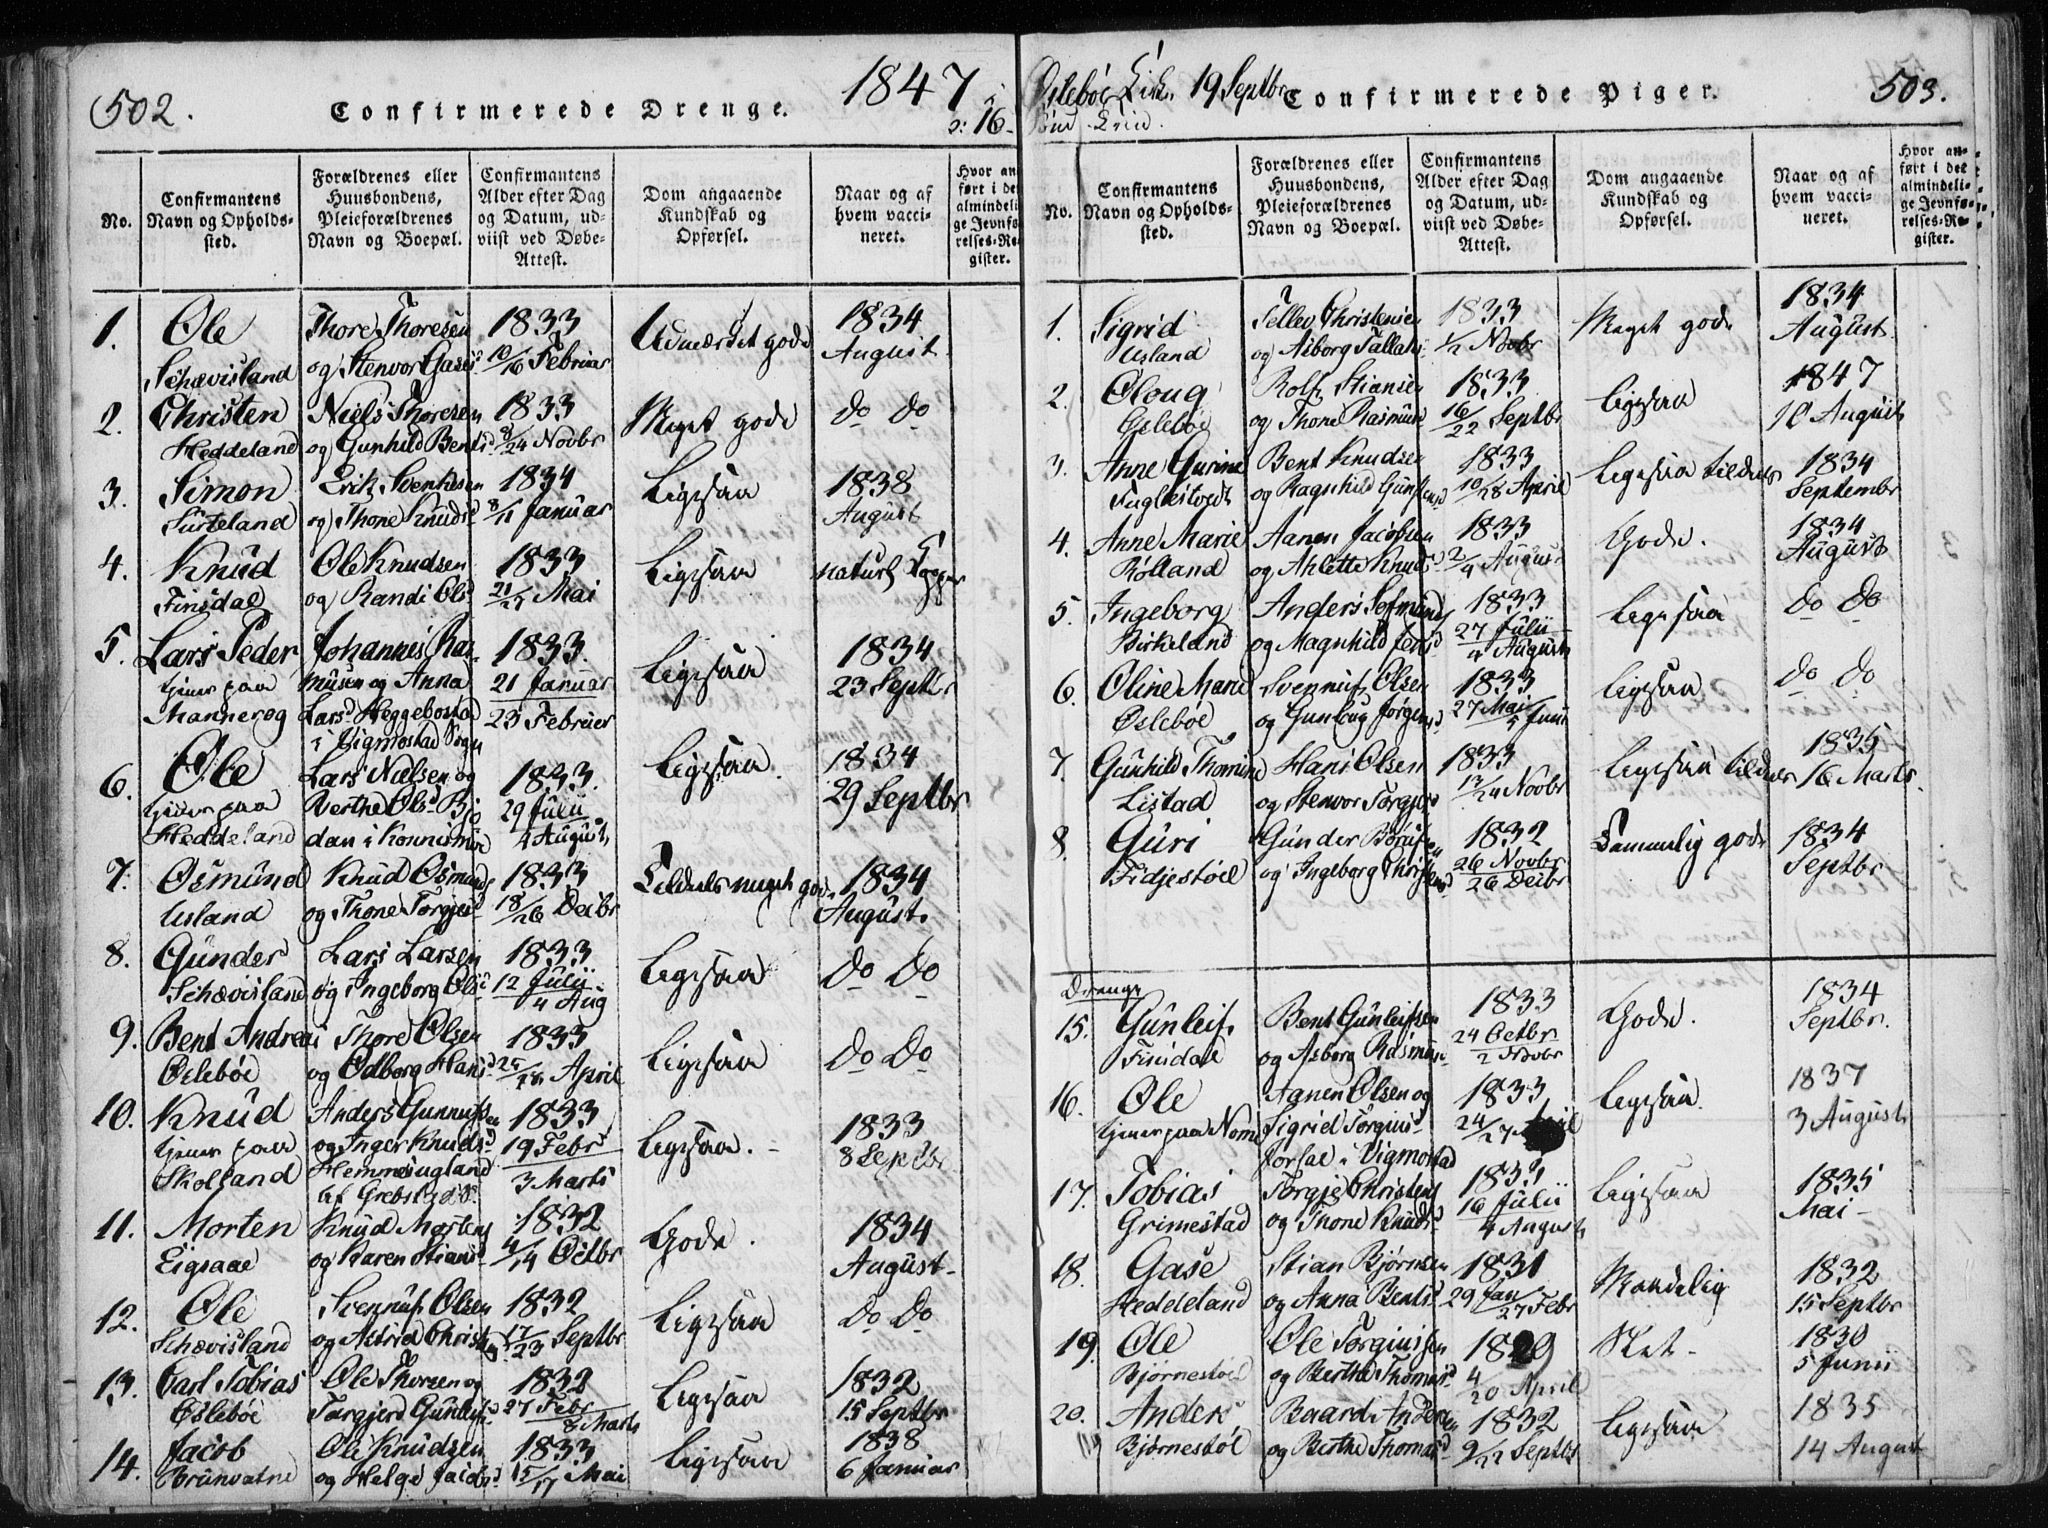 502.
Confirmerede Drenge.
1847
No.
Confirmantens Navn og Opholds-sted.
Forældrenes eller Huusbondens, Pleieforældrenes Navn og Boepæl.
Confirmantens Alder efter Dag og Datum, ud-viist ved Døbe-Attest.
Dom angaaende Kundskab og Opførsel.
Naar og af hvem vacci-neret.
Hvor an-ført i det almindeli-ge Jevnfø-relses-Re-gister.
1. Ole Schævisland
Thore Thoresen og Stenvor Gases
1833 10/16 Februar
Udmærket gode
1834 August
2. Christen Heddeland
Niels Thoresen og Gunhild Bentsd
1833 8/24 Novbr
Meget gode
do do
3. Simon Surteland
Erik Svenksen og Thone Knudsd
1834 8/11 Januar
Ligesaa
1838 August
4. Knud Finsdal
Ole Knudsen og Randi Olsd
1833 21/27 Mai
Ligesaa
naturl Kopper
5. Lars Peder tjener paa Mannerog
Johannes Rasmusen og Anna Larsd Heggebostad i Vigmostad Sogn
1833. 21 Januar 23 Februer
Ligesaa
1834 23 Septbr
6. Ole tjener paa Heddeland
Lars Nielsen og Berthe Olsd Bjodan i Konnismoe
1833. 29 Julii 4 August,
Ligesaa.
1834 29 Septbr
7. Osmund Usland
Knud Osmunds og Thone Torgjusd
1833 18/26 Decbr
Tildeels meget gode
1834 August.
8. Gunder Schævisland
Lars Larsen og Ingeborg Olsd
1833 12 Julii 4 Aug
Ligesaa
do do
9. Bent Andreas Øslebøe
Thore Olsen og Odborg Hansd
1833 25/28 April
Ligesaa
do do
10. Knud tjener paa Skolland
Anders Gunnufsen og Inger Knudsd Hemmesugland af Grebst
1833 19 Febr 3 Marts
Ligesaa.
1833 8 Septbr
11. Morten Eigsaae
Knud Mortens og Karen Stiansd
1832 4/14 Octbr
Gode.
1834 August
12. Ole Schævisland
Svennuf Olsen og Astrid Christens
1832 17/23 Septbr
Ligesaa
do do
13. Carl Tobias Øslebøe
Ole Thorsen og Torgjerd Gunleifsd
1832 27 Febr 8 Marts
Ligesaa
1832 15 Septbr
14. Jacob Brunvatne
Ole Knudsen og Helge Jacobsd
1833 15/17 Mai
Ligesaa
1838 6 Januar
Øslebøe Kirk. 19 Septbr
Confirmerede Piger.
503.
No.
Confirmantens Navn og Opholds-sted.
Forældrenes eller Huusbondens, Pleieforældrenes Navn og Boepæl.
Confirmantens Alder efter Dag og Datum, ud-viist ved Døbe-Attest.
Dom angaaende Kundskab og Opførsel.
Naar og af hvem vacci-neret.
Hvor an-ført i det almindeli-ge Jevnfø-relses-Re-gister.
1. Sigrid Usland
Tellev Christensen og Asborg Tallaks
1833 1/2 Novbr
Meget gode
1834 August
2. Oloug Øslebøe
Rolf Stiansen og Thone Rasmus
1833 16/22 Septbr
Ligesaa
1847 10 August
3. Anne Gurine Fuglestvedt
Bent Knudsen og Ragnhild Gunsteensd
1833 10/28 April
Ligesaa tildeels
1834 Septembr
4. Anne Marie Rølland
Aanen Jacobsen og Ahlette Knudsd
1833 2/4 August
Gode.
1834 August
5. Ingeborg Birkeland
Anders Sofmunds og Magnhild Jensd
1833 27 Julii 4 August
Ligesaa
do do
6. Oline Marie Øslebøe
Svennuf Olsen og Gunloug Jørgensd
1833 27 Mai 5 Juni
Ligesaa
do do
7. Gunhild Thomine Listad
Hans Olsen og Stenvor Torgjusd
1833 17/24 Novbr
Ligesaa tildeels
1835 16 Marts.
8. Guri Fidjestøel
Gunder Børufsen og Ingeborg Thorsteensd
1832 26 Novbr 26 Decbr
Temmelig gode
1834 Septbr
Drenge
15. Gunleif. Finsdal
Bent Gunleifsen og Asborg Rasmus
1833 24 Octbr 2 Novbr
Gode.
1834 Septbr.
16. Ole tjener paa Nome
Aanen Olsen og Sigrid Torgius- Jorsal i Vigmostad
1833 24/27 April
Ligesaa.
1837 3 August
17. Tobias Grimestad
Torgje Christens og Thone Knudsd
1833 16 Julii 4 August
Ligesaa
1835 Mai
18. Gase Heddeland
Stian Bjørnsen og Anna Bentsd
1831 29 Jan 27 Febr
Maadelig
1832 15 Septbr
19. Ole Bjørnestøel
Ole Torgiussen og Berthe Thomasd
1829 4/20 April
Slet
1830 5 Junii
20. Anders Bjørnestøl
Baard Andersen og Berthe Thomasd
1832 9/22 Septbr
Ligesaa
1835 14 August